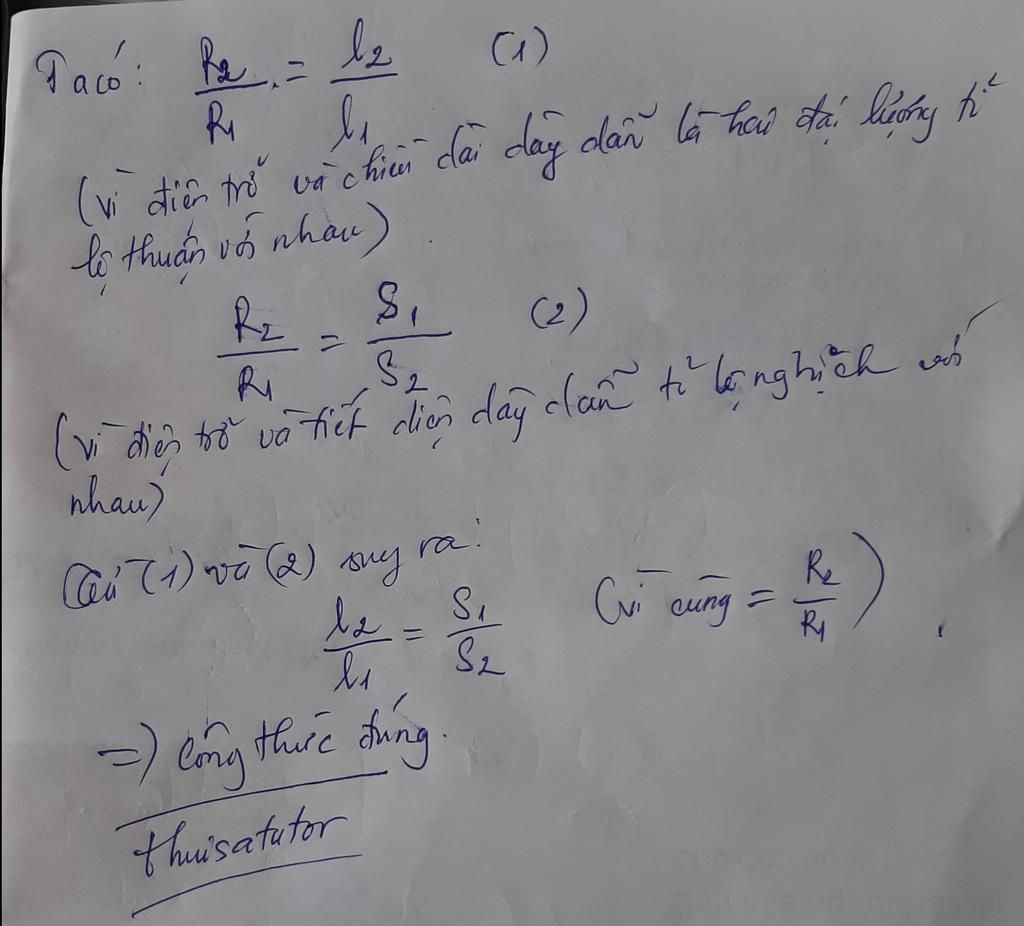 Ta có: R2/R1 = l2/l1 (1)
(vì điện trở và chiều dài dây dẫn là hai đại lượng tỉ
lệ thuận với nhau)
R2/R1 = S1/S2 (2)
(vì điện trở và tiết diện dây dẫn tỉ lệ nghịch với
nhau)
Từ (1) và (2) suy ra:
l2/l1 = S1/S2 (vì cùng = R2/R1)
=) công thức đúng.
thuisatutor